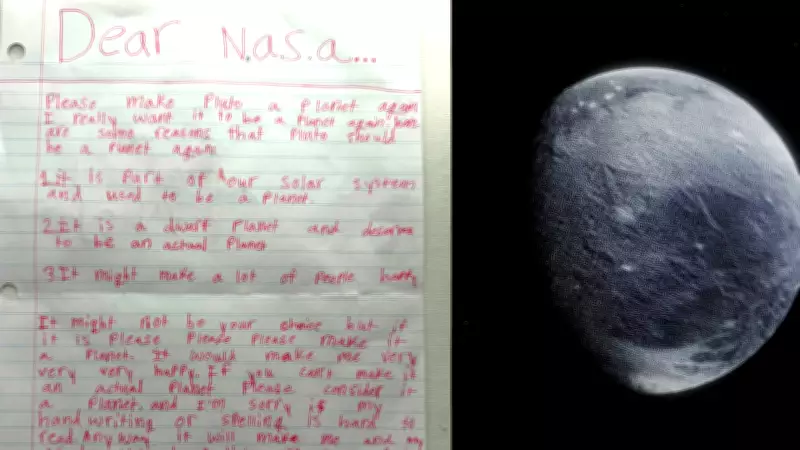 Dear N.a.s.a...
Please make Pluto a Planet again
I really want it to be a Planet again. here
are some reasons that Pluto should
be a Planet again
1 it is Part of our solar system
and used to be a Planet.
2 It is a dwarf Planet and deserves
to be an actual Planet
3 It might make a lot of People happy
It might not be your choice but if
it is Please Please Please make it
a Planet. It would make me very
very very happy. If you can't make it
an actual Planet Please consider it
a Planet. and I'm sorry if my
hand writing or spelling is hard to
read Any way it will make me and my